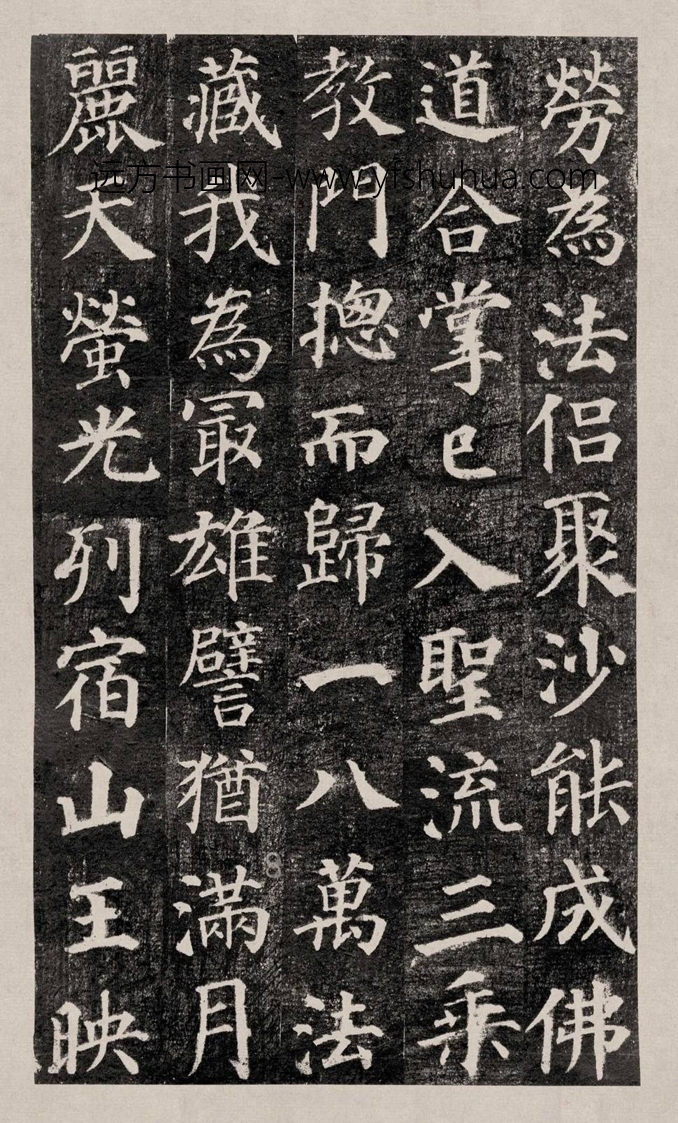 勞為法侶聚沙能成佛
道合掌已入聖流三乗
教門揔而歸一八萬法
藏我為冣雄譬猶滿月
麗天螢光列宿山王映
远方书画网-www.yfshuhua.com
8